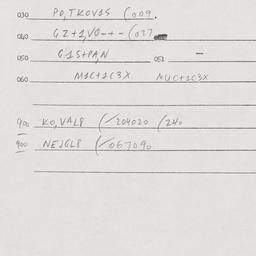 030 PO,TKOV15 (009.
040 GZ+1,VO-+- (027
050 G15+PAN 051 —
060 M1C+1C3X MUC+1C3X
900 KO,VAL8 (/204020 (240
900 NEJGL8 (/067090